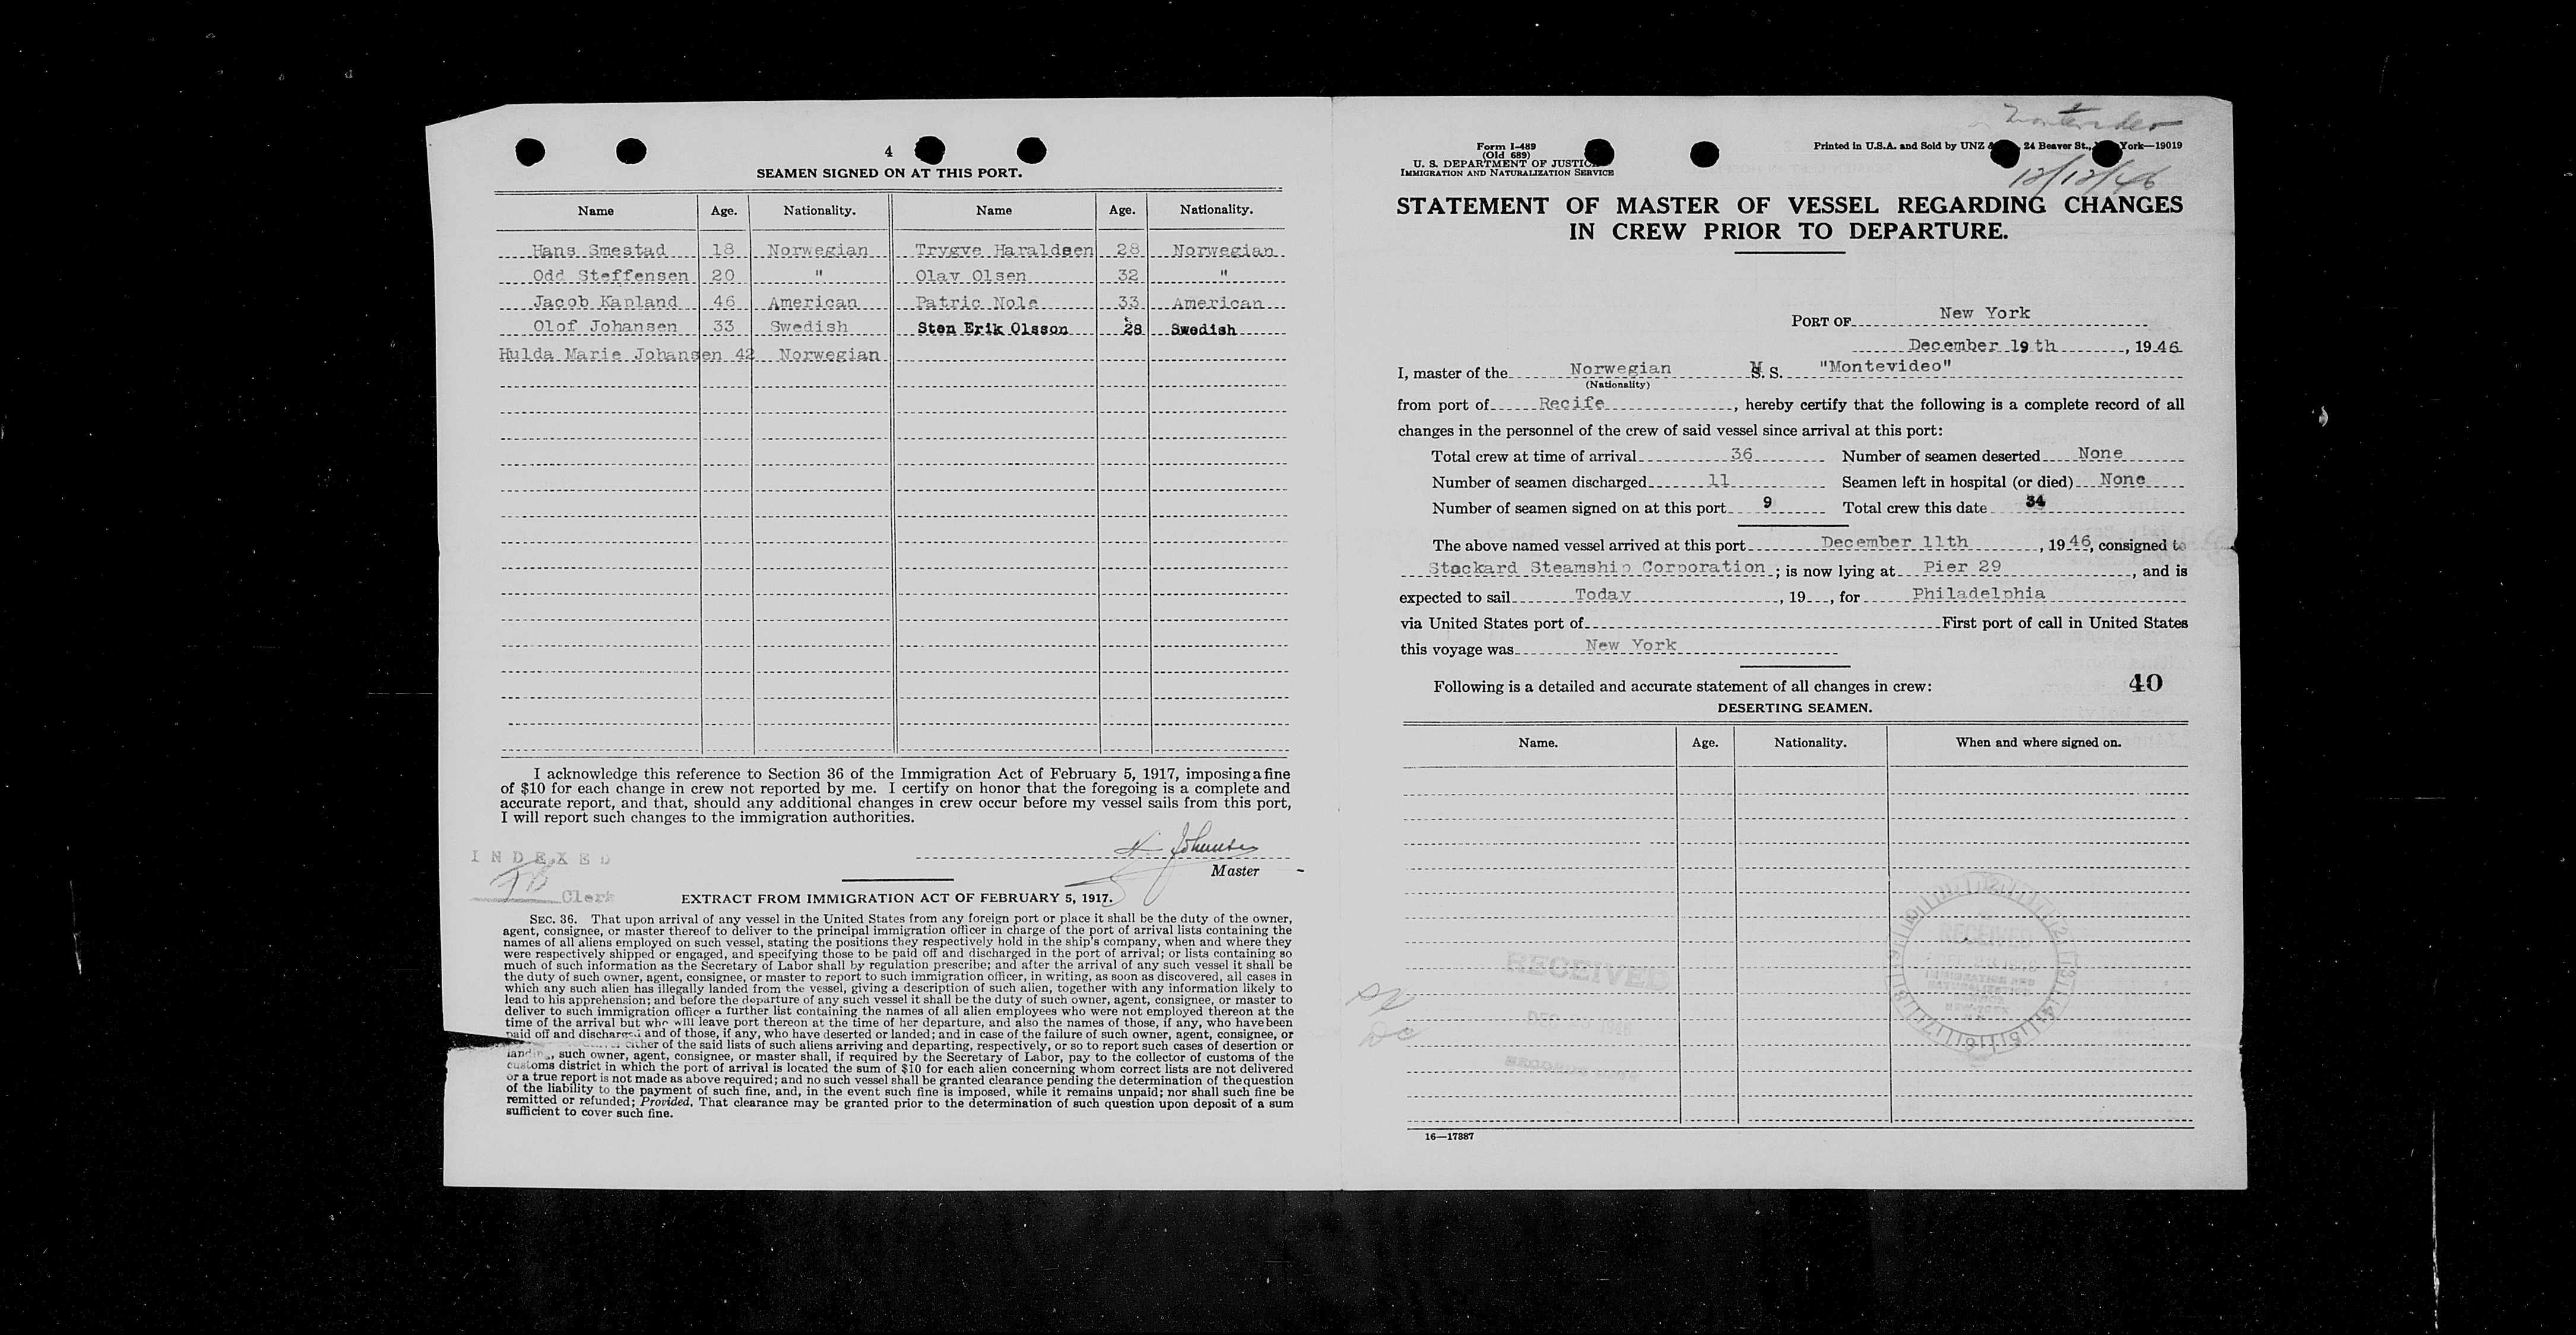 4
SEAMEN SIGNED ON AT THIS PORT.
Name Age. Nationality. Name Age. Nationality.
Hans Smestad 18 Norwegian Trygve Haraldsen 28 Norwegian
Odd Steffensen 20 " Olav Olsen 32 "
Jacob Kapland 46 American Patric Nole 33 American
Olof Johansen 33 Swedish Sten Erik Olsson 28 Swedish
Hulda Marie Johansen 42 Norwegian
I acknowledge this reference to Section 36 of the Immigration Act of February 5, 1917, imposing a fine
of $10 for each change in crew not reported by me. I certify on honor that the foregoing is a complete and
accurate report, and that, should any additional changes in crew occur before my vessel sails from this port,
I will report such changes to the immigration authorities.
INDEXED
Clerk
H. Johansen
Master
EXTRACT FROM IMMIGRATION ACT OF FEBRUARY 5, 1917.
SEC. 36. That upon arrival of any vessel in the United States from any foreign port or place it shall be the duty of the owner,
agent, consignee, or master thereof to deliver to the principal immigration officer in charge of the port of arrival lists containing the
names of all aliens employed on such vessel, stating the positions they respectively hold in the ship's company, when and where they
were respectively shipped or engaged, and specifying those to be paid off and discharged in the port of arrival; or lists containing so
much of such information as the Secretary of Labor shall by regulation prescribe; and after the arrival of any such vessel it shall be
the duty of such owner, agent, consignee, or master to report to such immigration officer, in writing, as soon as discovered, all cases in
which any such alien has illegally landed from the vessel, giving a description of such alien, together with any information likely to
lead to his apprehension; and before the departure of any such vessel it shall be the duty of such owner, agent, consignee, or master to
deliver to such immigration officer a further list containing the names of all alien employees who were not employed thereon at the
time of the arrival but who will leave port thereon at the time of her departure, and also the names of those, if any, who have been
paid off and discharged and of those, if any, who have deserted or landed; and in case of the failure of such owner, agent, consignee, or
either of the said lists of such aliens arriving and departing, respectively, or so to report such cases of desertion or
landing, such owner, agent, consignee, or master shall, if required by the Secretary of Labor, pay to the collector of customs of the
customs district in which the port of arrival is located the sum of $10 for each alien concerning whom correct lists are not delivered
or a true report is not made as above required; and no such vessel shall be granted clearance pending the determination of the question
of the liability to the payment of such fine, and, in the event such fine is imposed, while it remains unpaid; nor shall such fine be
remitted or refunded; Provided, That clearance may be granted prior to the determination of such question upon deposit of a sum
sufficient to cover such fine.
Montevideo
Form I-489
(Old 689)
U. S. DEPARTMENT OF JUSTICE
IMMIGRATION AND NATURALIZATION SERVICE
Printed in U.S.A. and Sold by UNZ & 24 Beaver St., York—19019
12/12/46
STATEMENT OF MASTER OF VESSEL REGARDING CHANGES
IN CREW PRIOR TO DEPARTURE.
PORT OF New York
December 19th, 1946
I, master of the Norwegian M. S. "Montevideo"
(Nationality)
from port of Recife, hereby certify that the following is a complete record of all
changes in the personnel of the crew of said vessel since arrival at this port:
Total crew at time of arrival 36 Number of seamen deserted None
Number of seamen discharged 11 Seamen left in hospital (or died) None
Number of seamen signed on at this port 9 Total crew this date 34
The above named vessel arrived at this port December 11th, 1946, consigned to
Stockard Steamship Corporation; is now lying at Pier 29, and is
expected to sail Today, 19, for Philadelphia
via United States port of First port of call in United States
this voyage was New York
Following is a detailed and accurate statement of all changes in crew: 40
DESERTING SEAMEN.
Name. Age. Nationality. When and where signed on.
RECEIVED
RECEIVED
16—17887